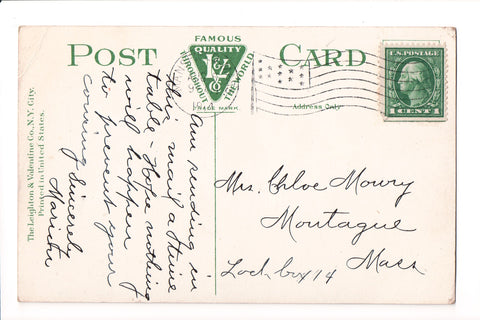 FAMOUS
QUALITY
THROUGHOUT THE WORLD
L&V Co
TRADE MARK
POST CARD
Address Only
U.S. POSTAGE
1 CENT 1
The Leighton & Valentine Co., N.Y. City.
Printed in United States.
Am sending in
this mail a time
table - Hope nothing
will happen
to prevent your
coming
Sincerely
Mrs. Chloe Moury
Montague
Lock box 14
Mass